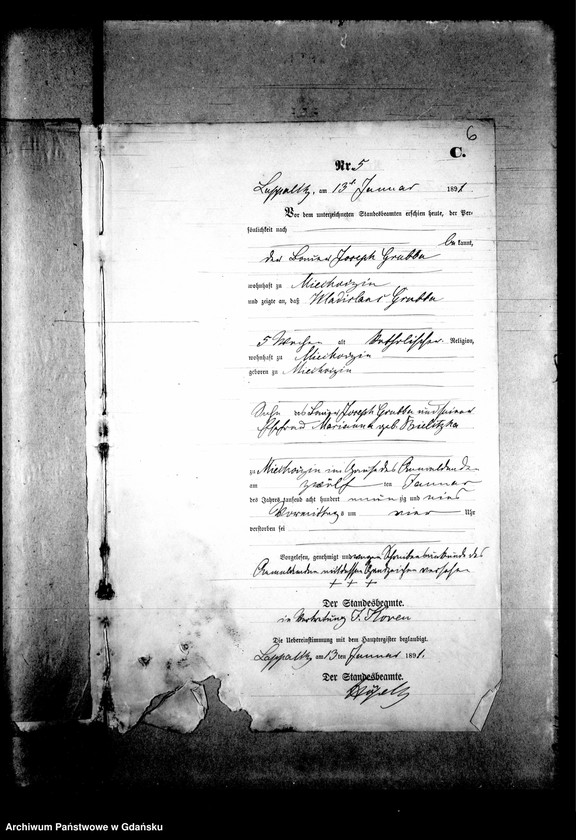 6
C.
Nr. 5
am 13t Januar 1891.
Vor dem unterzeichneten Standesbeamten erschien heute, der Per-
sönlichkeit nach
kannt,
der Bauer Joseph Grubba
wohnhaft zu Miechorzin
und zeigte an, daß Wladislaus Grubba
5 Wochen alt katholischer Religion,
wohnhaft zu Miechorzin
geboren zu Miechorzin
Sohn des Bauer Joseph Grubba und seiner
Ehefrau Marianna geb. Bielitzka
zu Miechorzin im Hause des Anmeldenden
am zwölften Januar
des Jahres tausend acht hundert neunzig und eins
Vormittags um vier Uhr
verstorben sei
Vorgelesen, genehmigt und wegen Schreibunkunde des
Anmeldenden mit dessen Handzeichen versehen
+ + +
Der Standesbeamte.
in Vertretung
Die Uebereinstimmung mit dem Hauptregister beglaubigt.
am 13ten Januar 1891.
Der Standesbeamte.
Archiwum Państwowe w Gdańsku